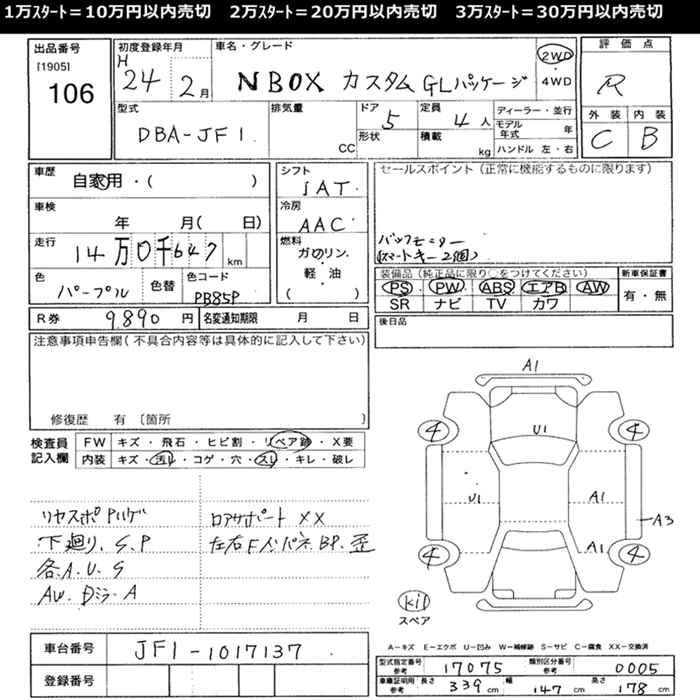 1万ｽﾀｰﾄ＝10万円以内売切　2万ｽﾀｰﾄ＝20万円以内売切　3万ｽﾀｰﾄ＝30万円以内売切
出品番号
[1905]
106
初度登録年月
H 24 2月
車名・グレード
N BOX カスタム GLパッケージ
2WD
4WD
評価点
R
外装 内装
C B
型式
DBA-JF1
排気量
CC
ドア 5
形状
定員 4人
積載 kg
ディーラー・並行
モデル年式 年
ハンドル 左・右
車歴
自家用・( )
シフト
IAT
車検
年 月( 日)
冷房
AAC
走行
14万0千647km
燃料
ガソリン・
軽・油
( )
色
パープル
色替
色コード
PB85P
R券 9.890円
名変通知期限 月 日
セールスポイント（正常に機能するものに限ります）
バックモニター
スマートキー2個
装備品（純正品に限り○をつけてください）
PS・PW・ABS・エアB・AW
SR ナビ TV カワ
新車保証書
有・無
後日品
注意事項申告欄(不具合内容等は具体的に記入して下さい)
修復歴 有〔箇所 〕
検査員記入欄
FW キズ・飛石・ヒビ割・リペア跡・X要
内装 キズ・汚レ・コゲ・穴・スレ・キレ・破レ
リヤスポ ハゲ
下廻り、S.P
各A.U.S
AW. Dミラ-A
ロアサポート XX
左右Fインパネ BP.歪
車台番号 JF1-1017137
登録番号
A1
4 U1 4
U1 A1
A3
4 A1 4
kit
スペア
A－キズ E－エクボ U－凹み W－補修跡 S－サビ C－腐食 XX－交換済
型式指定番号 参考 17075
類別区分番号 参考 0005
車庫証明用 参考 長さ 339cm 幅 147cm 高さ 178cm